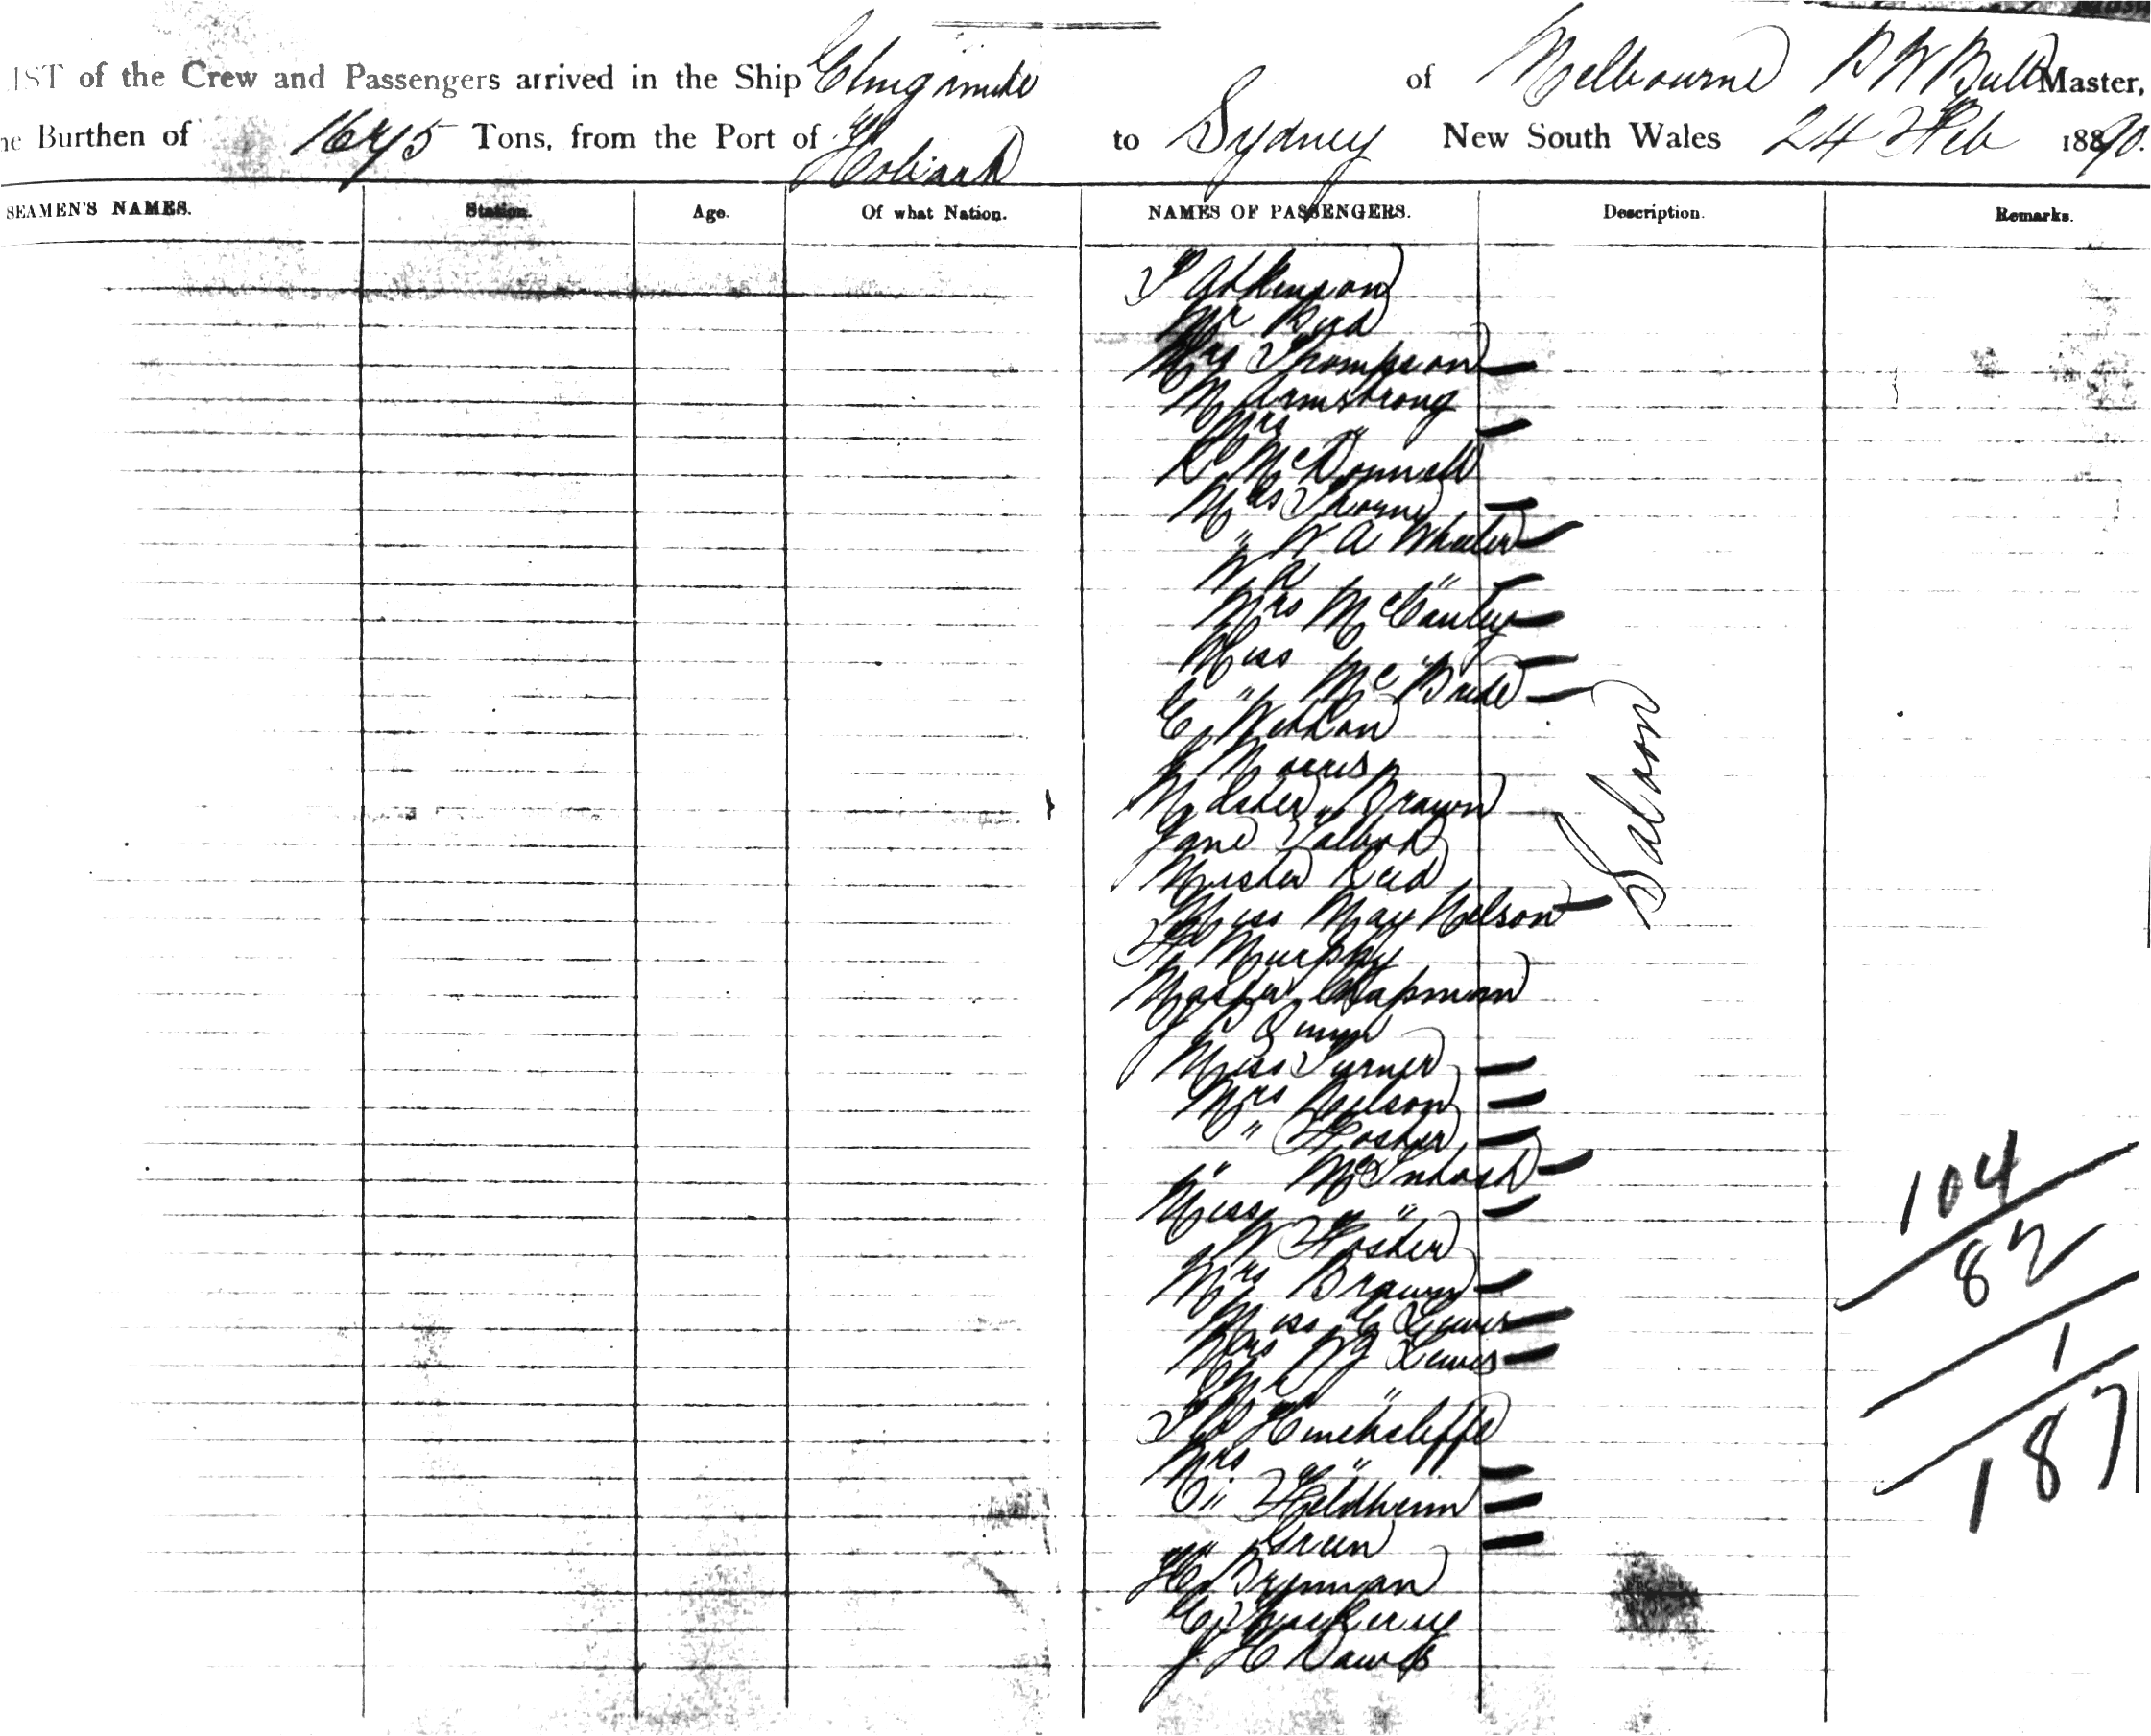 IST of the Crew and Passengers arrived in the Ship Elingamite of Melbourne Master,
he Burthen of 1675 Tons, from the Port of Hobart to Sydney New South Wales 24 Feb 1890.
SEAMEN'S NAMES. Station. Age. Of what Nation. NAMES OF PASSENGERS. Description. Remarks.
T Atkinson
Mr
Mrs Thompson
M Armstrong
Mrs "
R McDonnell
Mrs Thorne
" W A Wheeler
W R "
Mrs McCauley
Miss "
" McBride
C
J Morris
Master Brown
Jane Talbot
Master Reid
Miss May Nelson
Saloon
F Murphy
Master Chapman
J P Quinn
Miss Turner
Mrs Neilson
" Foster
" McIntosh
Miss "
W Foster
Mrs Brown
Miss C Lewis
Mrs W J Lewis
Mr "
Hinchcliffe
Mrs "
" Feldheim
" Green
H Brennan
C Thackeray
J H Dawes
104
82
1
187